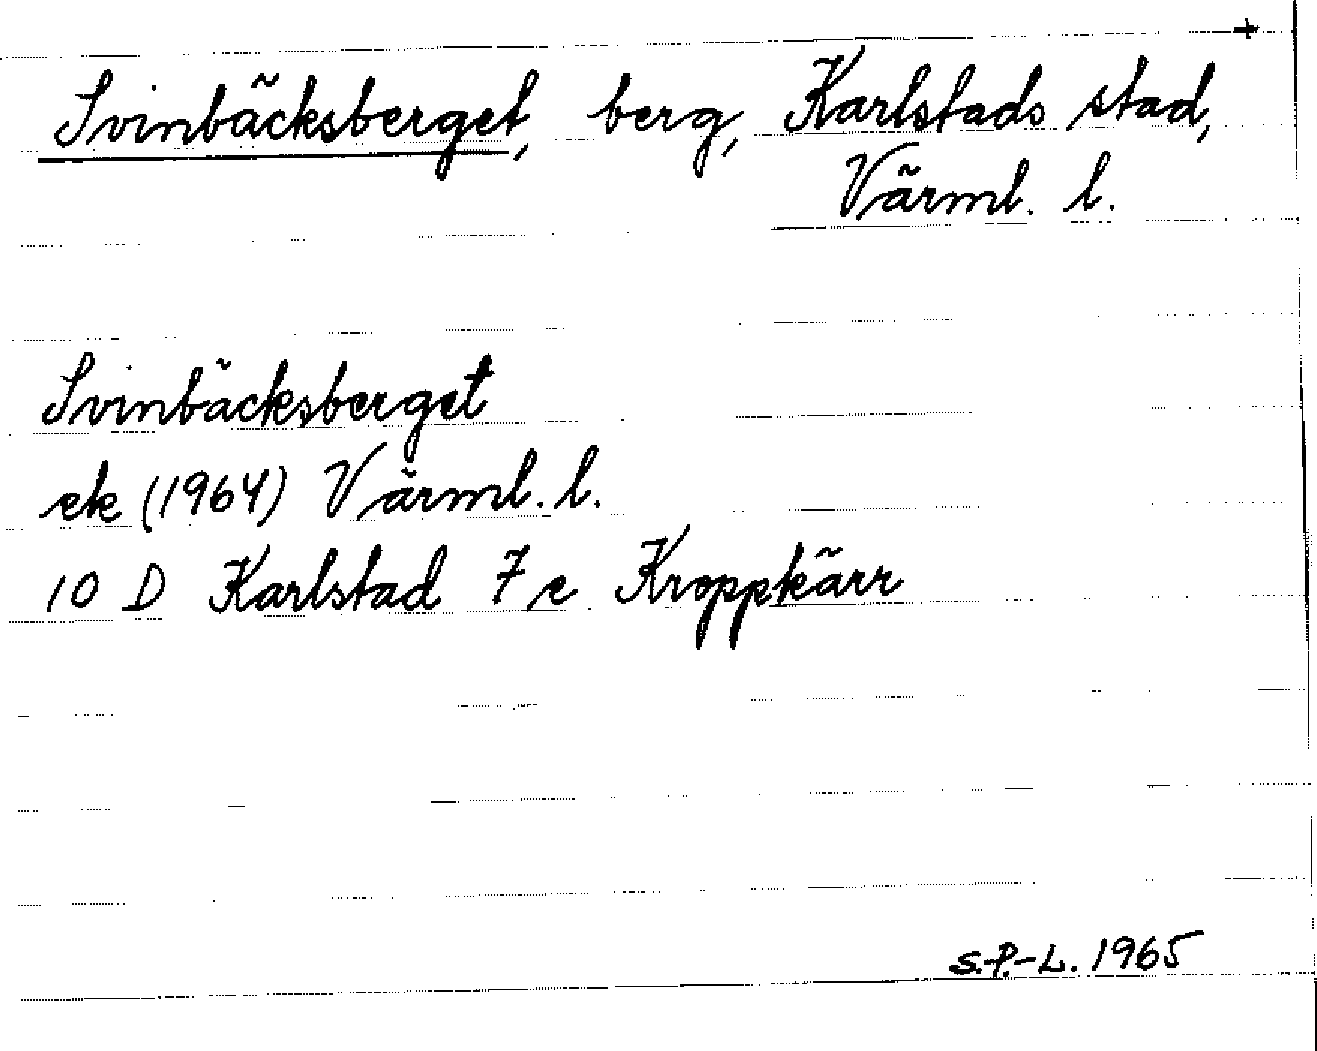 +
Svinbäcksberget, berg, Karlstads stad,
Värml. l.
Svinbäcksberget
ek (1964) Värml. l.
10 D Karlstad 7 e Kroppkärr
S.-P.-L. 1965